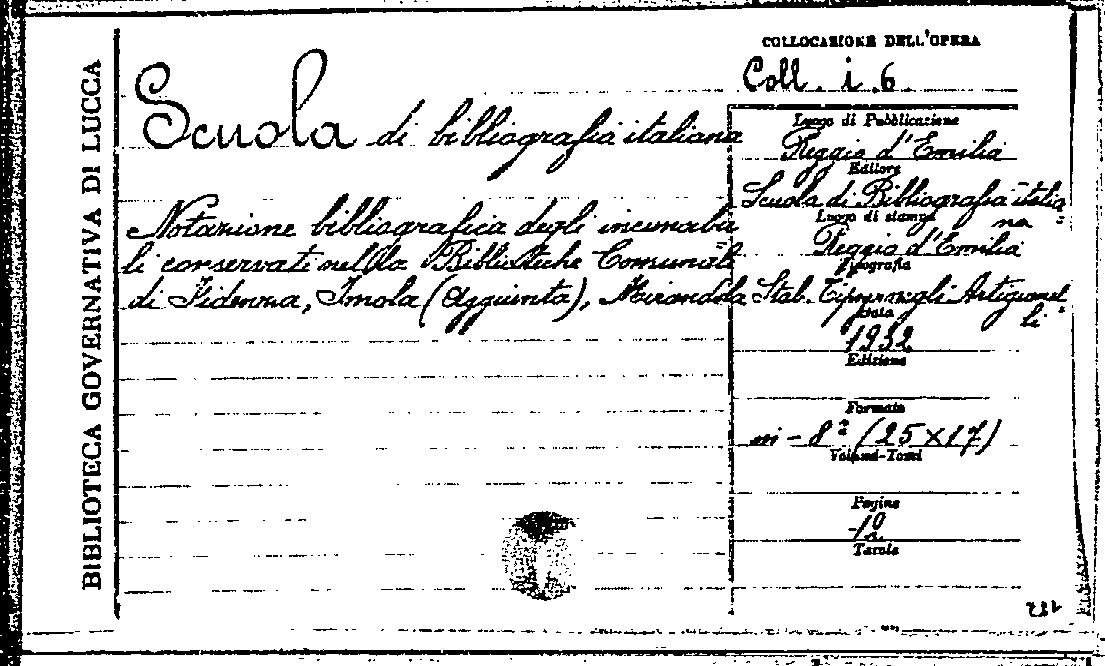 BIBLIOTECA GOVERNATIVA DI LUCCA
COLLOCAZIONE DELL'OPERA
Coll. i.6.
Scuola di bibliografia italiana
Notazione bibliografica degli incunabu
li conservati nella Biblioteche Comunali
di Fidenza, Imola (Aggiunta), Mirandola
Luogo di Pubblicazione
Reggio d'Emilia
Editore
Scuola di Bibliografia italia
na
Luogo di stampa
Reggio d'Emilia
Tipografia
Stab. Tipogr. negli Artigianel
li
Data
1932
Edizione
Formato
in-8° (25×17)
Volumi-Tomi
Pagine
Tavole